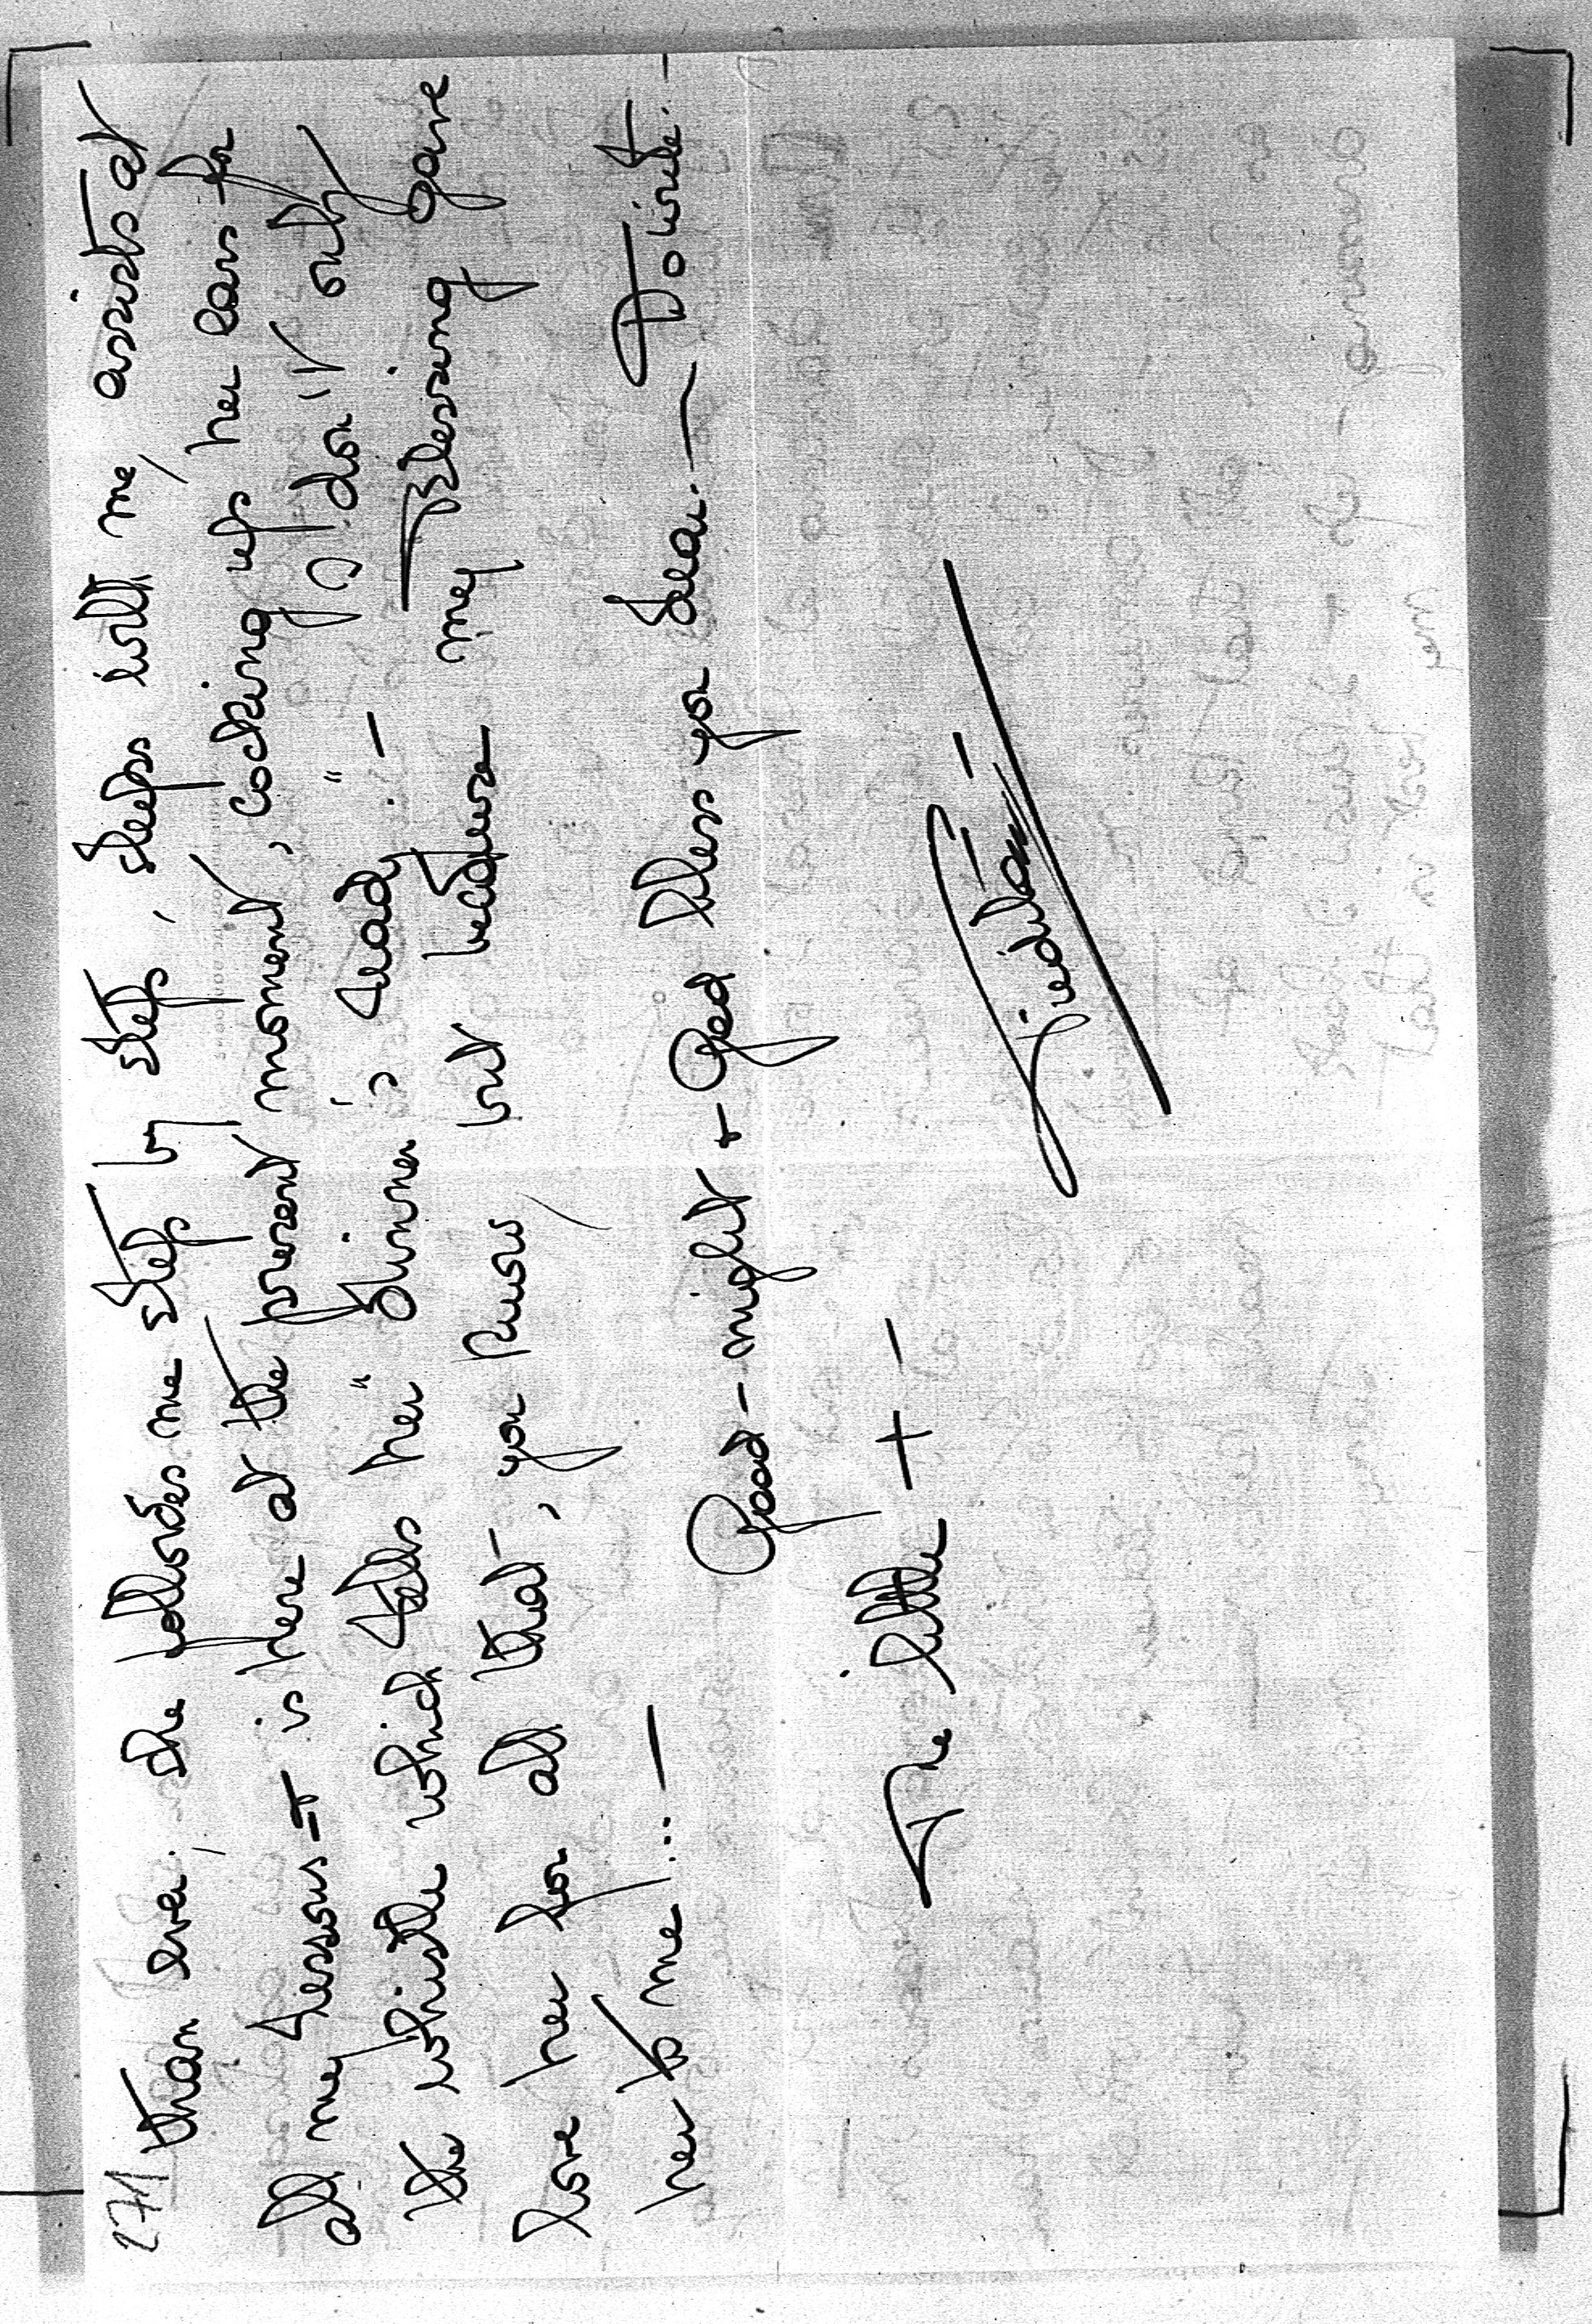 271
than ever, she follows me step by step, sleeps with me, assists at
all my lessons = is here at the present moment, cocking up her ears for
the whistle which tells her "dinner is ready" — I don't only
love her for all that, you know, but because my Blessing gave
her to me ... —
Good-night + God bless you dear. —
The little + —